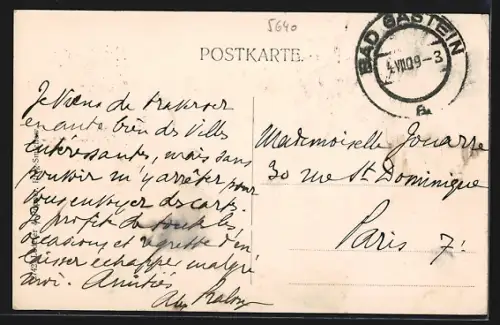 5640
POSTKARTE.
BAD GASTEIN
VII 09-3
a
Je viens de traverser
en auto bien des villes
intéressantes, mais sans
pouvoir m'y arrêter pour
vous envoyer des cartes.
Je profite de toutes les
occasions et regrette d'en
laisser échapper malgré
moi. Amitiés
Mademoiselle Jouarre
30 rue St Dominique
Paris 7!